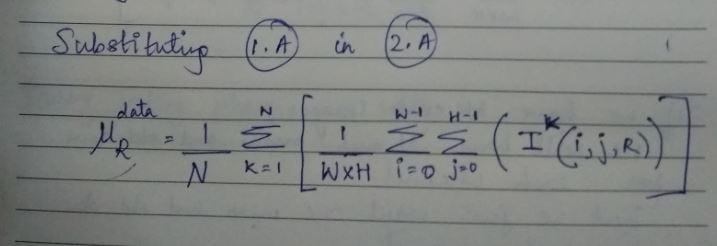 Substituting (1.A) in (2.A)
μ_R^data = 1/N Σ_{k=1}^{N} [ 1/(W×H) Σ_{i=0}^{W-1} Σ_{j=0}^{H-1} ( I^k (i,j,R) ) ]